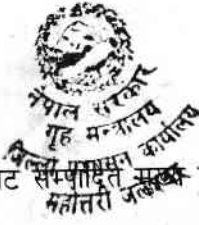 नेपाल सरकार
गृह मन्त्रालय
जिल्ला प्रशासन कार्यालय
ाट सम्पादित
महोत्तरी